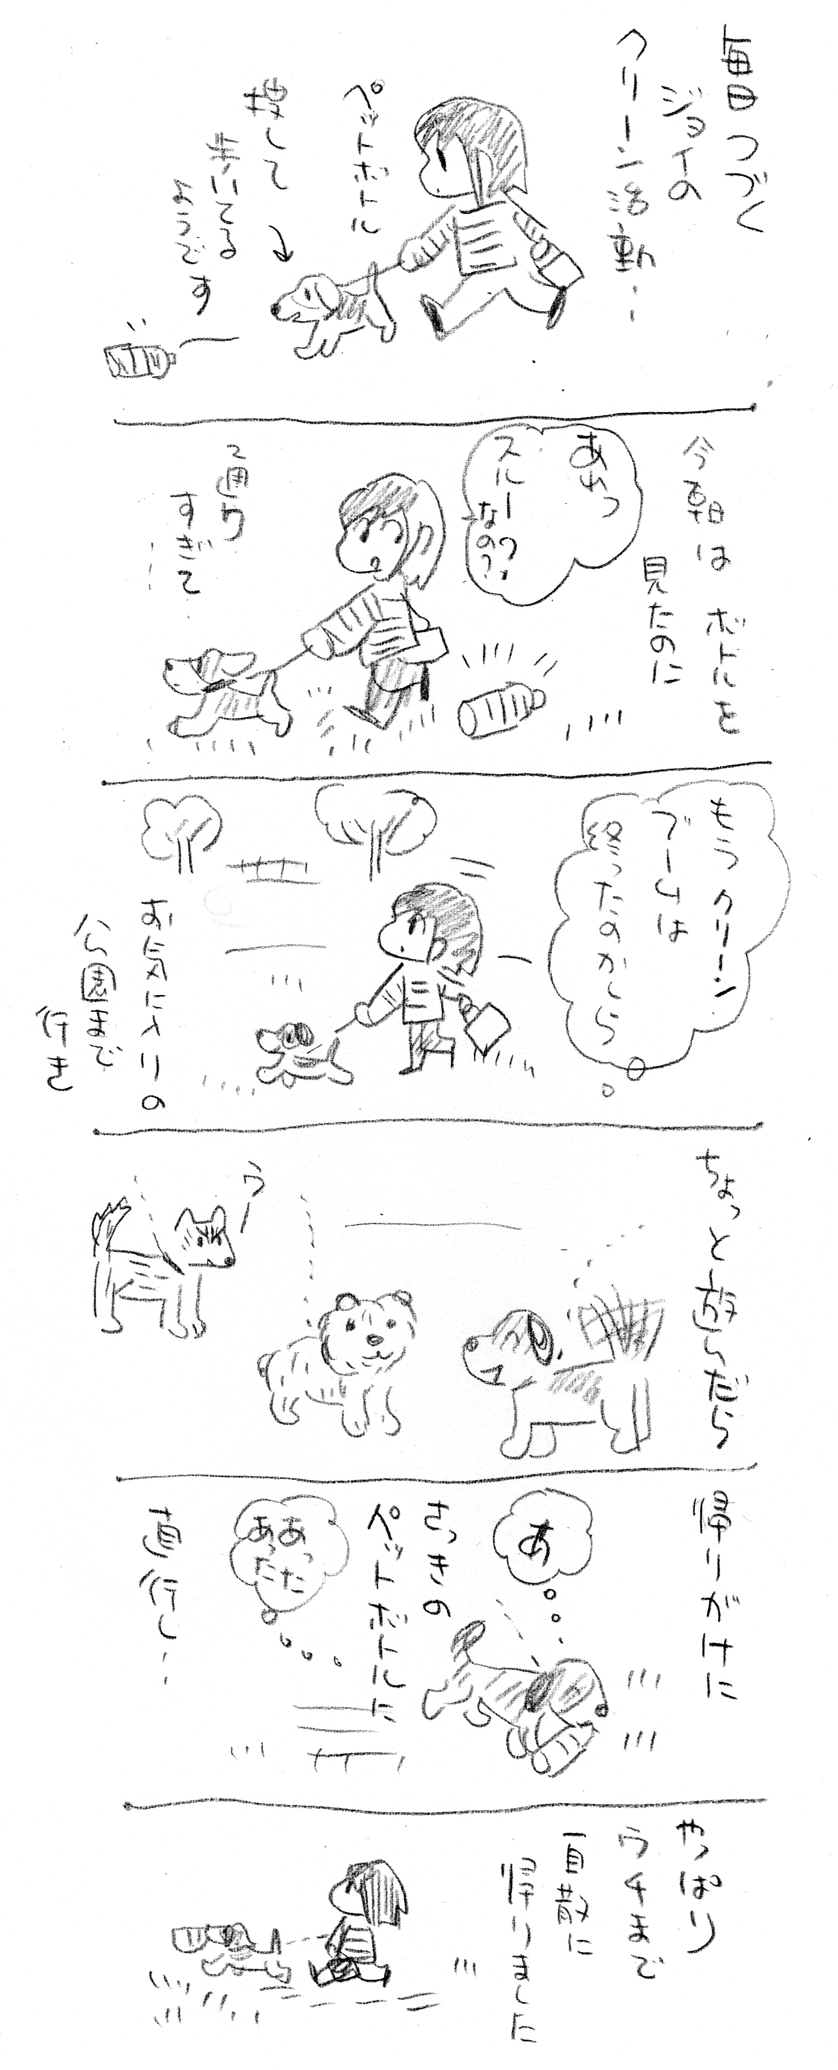 毎日つづく
ジョイの
クリーン活動…
ペットボトル
捜して
歩いてる
ようです
今朝はボトルを
見たのに
あれっ
スルー?
なの?
通り
すぎて…
もうクリーン
ブームは
終ったのかしら
お気に入りの
公園まで
行き
ちょっと遊んだら
う
帰りがけに
あ
さっきの
ペットボトルに
あった
あった
直行し…
やっぱり
ウチまで
一目散に
帰りました